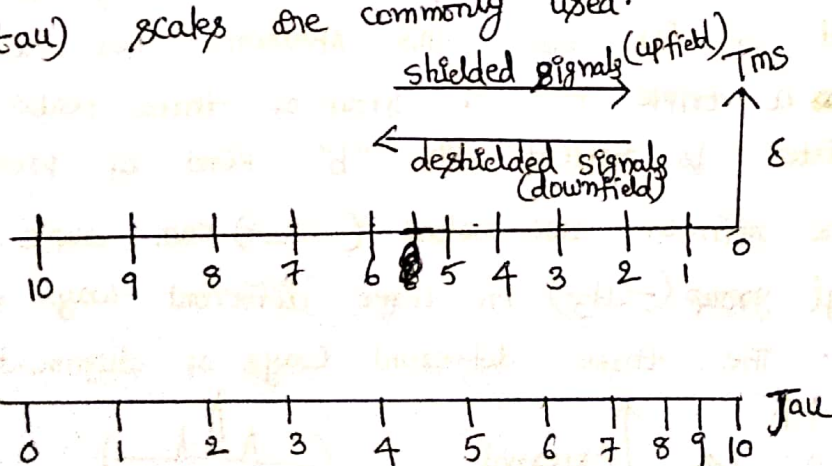 tau) scales are commonly used.
shielded signals (upfield)
Tms
deshielded signals
(downfield)
δ
10 9 8 7 6 5 4 3 2 1 0
0 1 2 3 4 5 6 7 8 9 10 Tau